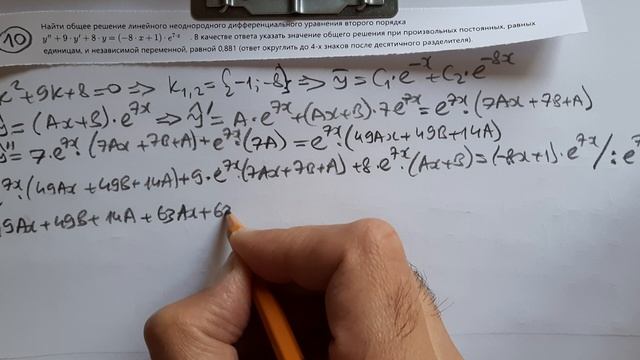 10
Найти общее решение линейного неоднородного дифференциального уравнения второго порядка
y'' + 9 · y' + 8 · y = (−8 · x + 1) · e^{7·x} . В качестве ответа указать значение общего решения при произвольных постоянных, равных
единицам, и независимой переменной, равной 0,881 (ответ округлить до 4-х знаков после десятичного разделителя).
k²+9k+8=0 => k₁,₂={-1;-8} => ȳ=C₁·e^{-x}+C₂·e^{-8x}
=(Ax+B)·e^{7x} => ỹ'=A·e^{7x}+(Ax+B)·7e^{7x}=e^{7x}·(7Ax+7B+A)
''=7·e^{7x}·(7Ax+7B+A)+e^{7x}·(7A)=e^{7x}·(49Ax+49B+14A)
7x·(49Ax+49B+14A)+9·e^{7x}·(7Ax+7B+A)+8·e^{7x}·(Ax+B)=(-8x+1)·e^{7x} /:e^7
9Ax+49B+14A+63Ax+63